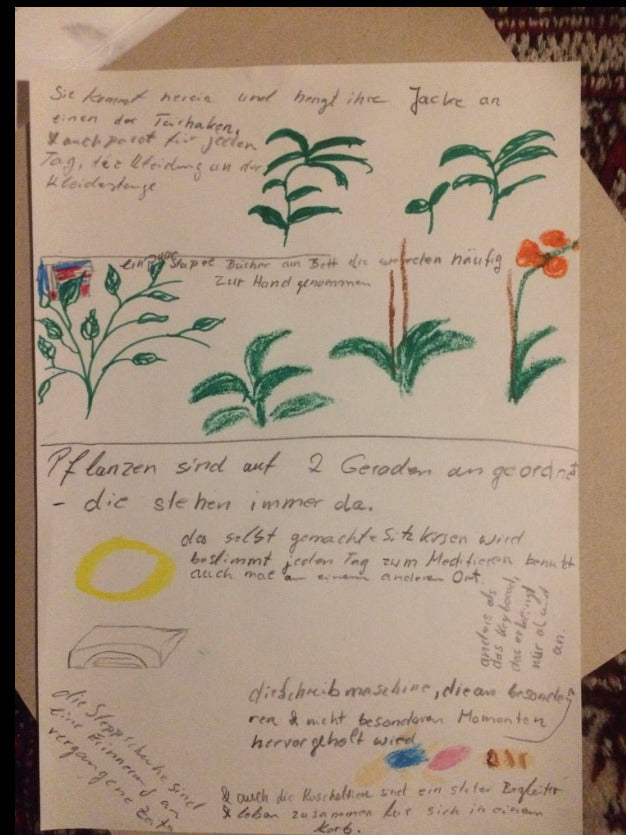 Sie kommt herein und hengt ihre Jacke an
einen der Türhaken,
& auch passt für jeden
Tag, die Kleidung an der
Kleiderstange
ein paar Stapel Bücher am Bett die werden häufig
zur Hand genommen
Pflanzen sind auf 2 Geraden angeordnet
- die stehen immer da.
das selbst gemachte Sitzkissen wird
bestimmt jeden Tag zum Meditieren benutzt
auch mal an einem anderen Ort.
anders als
das Keyboard,
das erklingt
nur ab und
an.
die Schreibmaschine, die an besonde-
ren & nicht besonderen Momenten
hervorgeholt wird
die Steppschuhe sind
eine Erinnerung an
vergangene Zeiten
& auch die Kuscheltiere sind ein steter Begleiter
& leben zusammen für sich in einem
Korb.